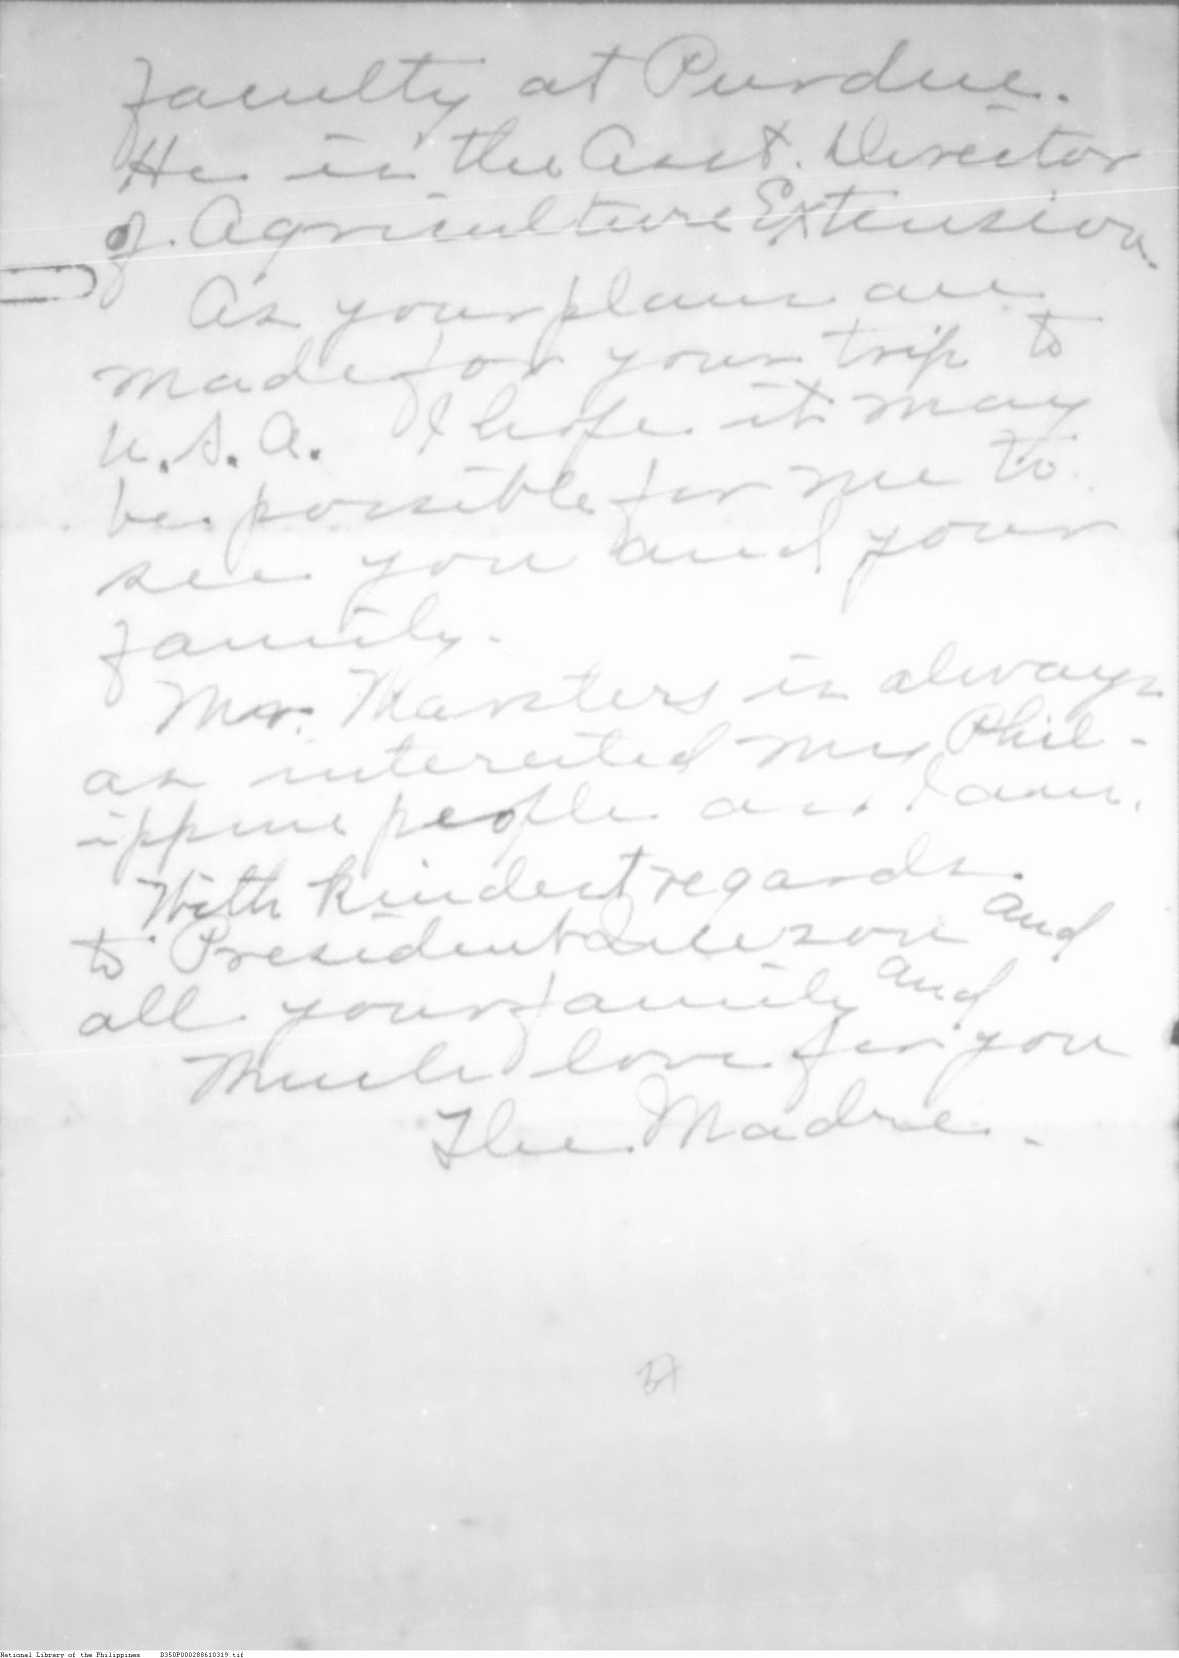 faculty at Purdue.
He is the Asst. Director
of Agriculture Extension.
As your plans are
made for your trip to
U.S.A. I hope it may
be possible for me to
see you and your
family.
Mr. Marsters is always
as interested my Phil-
ippine people as I am.
With kindest regards
to President and
all your family and
Much love for you
The Madre.
National Library of the Philippines D350P000288610319.tif